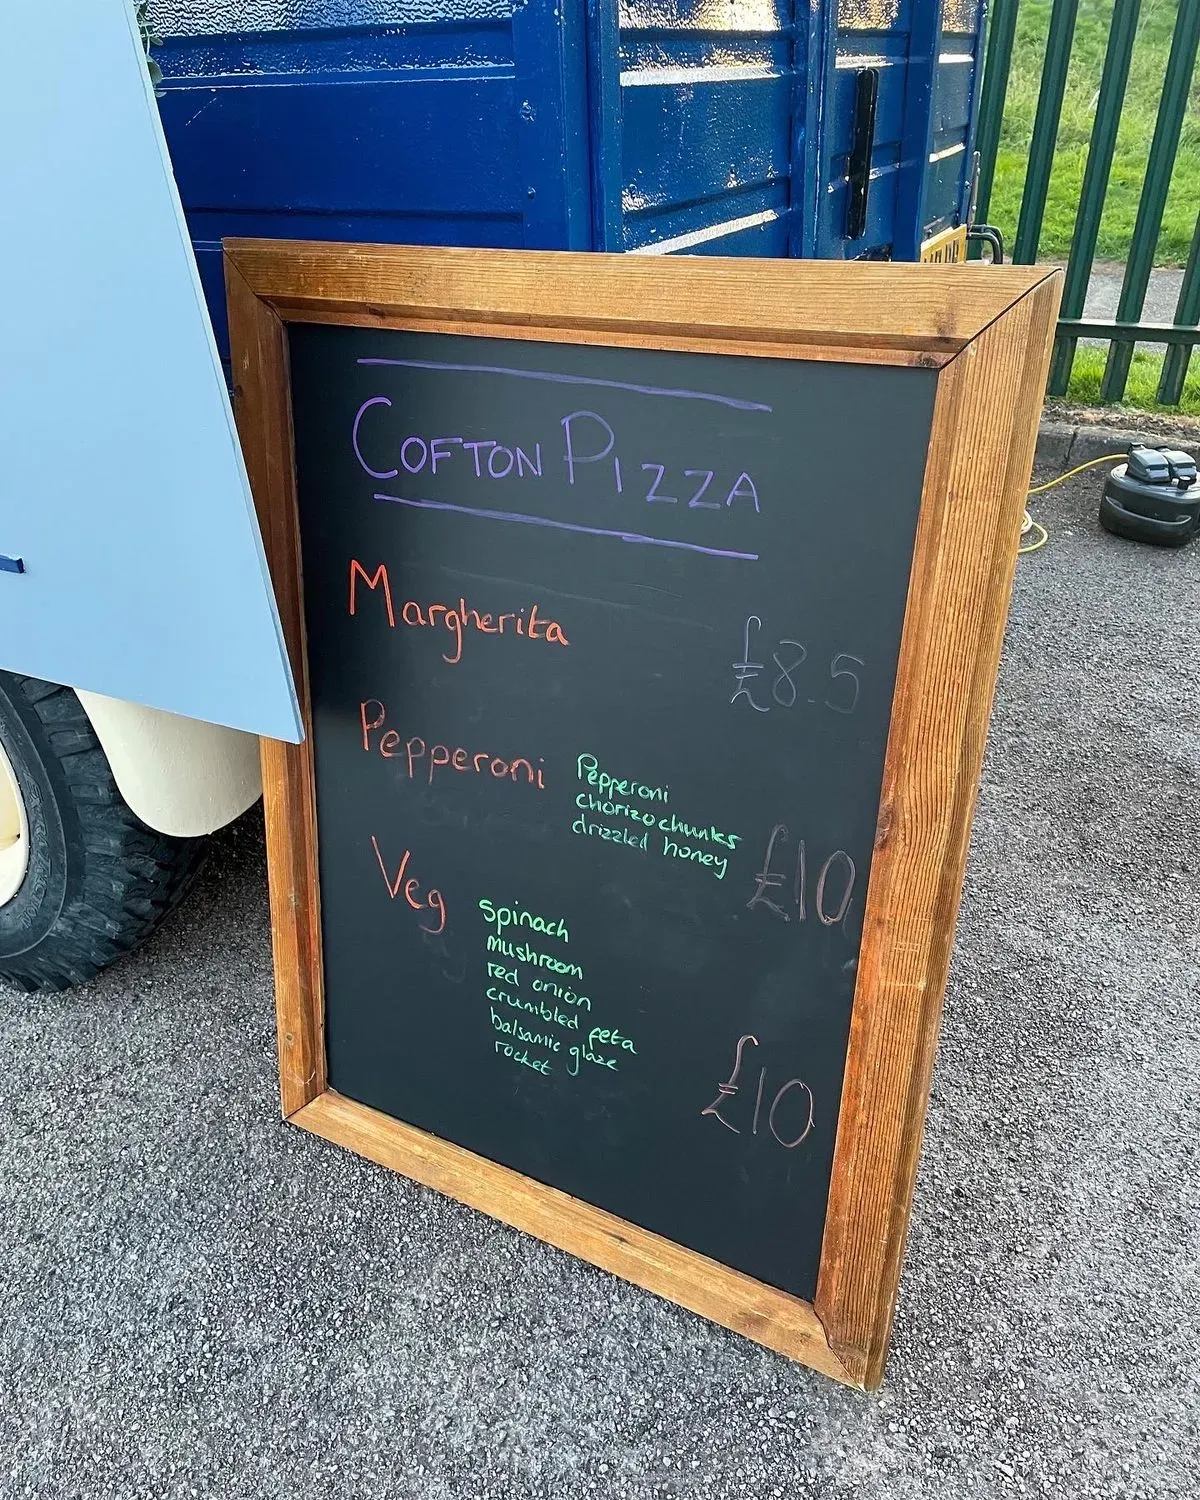 COFTON PIZZA
Margherita £8.5
Pepperoni
Pepperoni
chorizo chunks
drizzled honey
£10
Veg
Spinach
mushroom
red onion
crumbled feta
balsamic glaze
rocket
£10